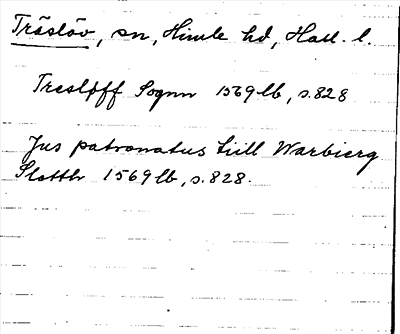 Träslöv, sn, Himle hd, Hall. l.
Tresløff Sognn 1569 lb, s. 828
Jus patronatus till Warbierg
Slotth 1569 lb, s. 828.